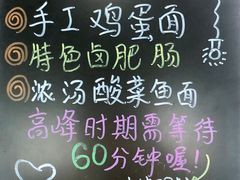 手工鸡蛋面
特色卤肥肠
浓汤酸菜鱼面
高峰时期需等待
60分钟喔!